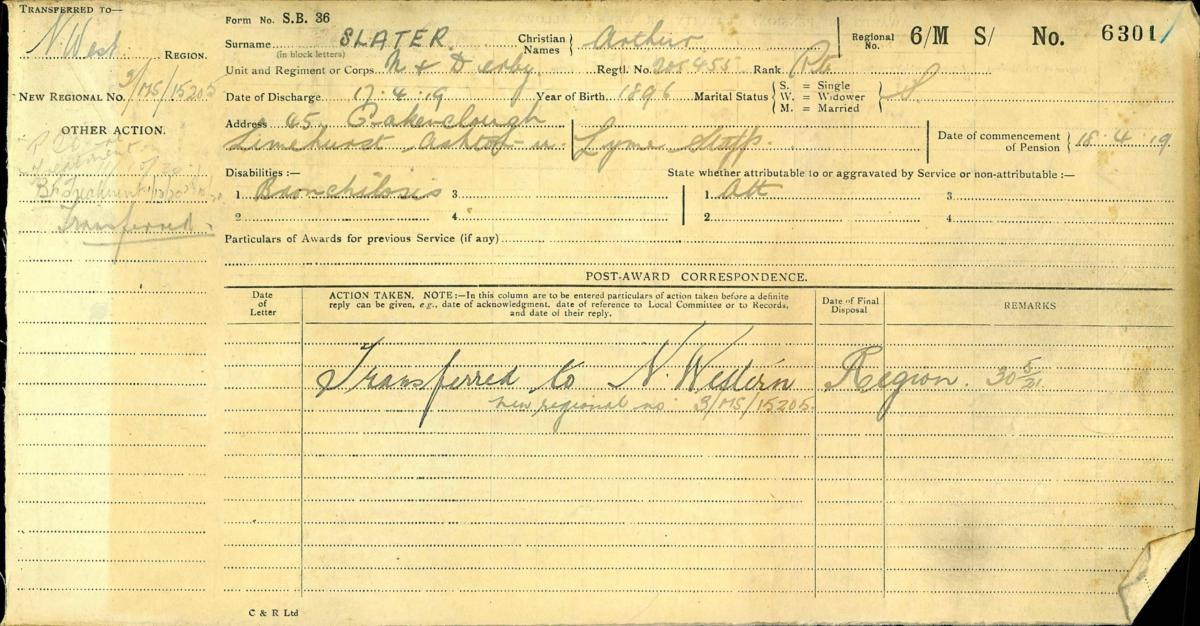 TRANSFERRED TO—
N. West
REGION.
NEW REGIONAL No. 3/MS/15205
OTHER ACTION.
Treatment
Transferred
Form No. S.B. 36
Surname SLATER
(in block letters)
Christian Names } Arthur
Regional No. 6/M S/ No. 6301
Unit and Regiment or Corps. N & Derby Regtl. No. 205455 Rank Pte
Date of Discharge 17.4.19 Year of Birth 1896 Marital Status { S. = Single W. = Widower M. = Married } S.
Address 45, Oakenclough
Limehurst Ashton-u. Lyme Staff.
Date of commencement of Pension } 18.4.19.
Disabilities :—
State whether attributable to or aggravated by Service or non-attributable :—
1. Bronchitosis 3. 1. Att 3.
2. 4. 2. 4.
Particulars of Awards for previous Service (if any)
POST-AWARD CORRESPONDENCE.
Date of Letter
ACTION TAKEN. NOTE :—In this column are to be entered particulars of action taken before a definite
reply can be given, e.g., date of acknowledgment, date of reference to Local Committee or to Records,
and date of their reply.
Date of Final Disposal
REMARKS
Transferred to N. Western Region. 30 5/21
new regional no: 3/MS/15205.
C & R Ltd